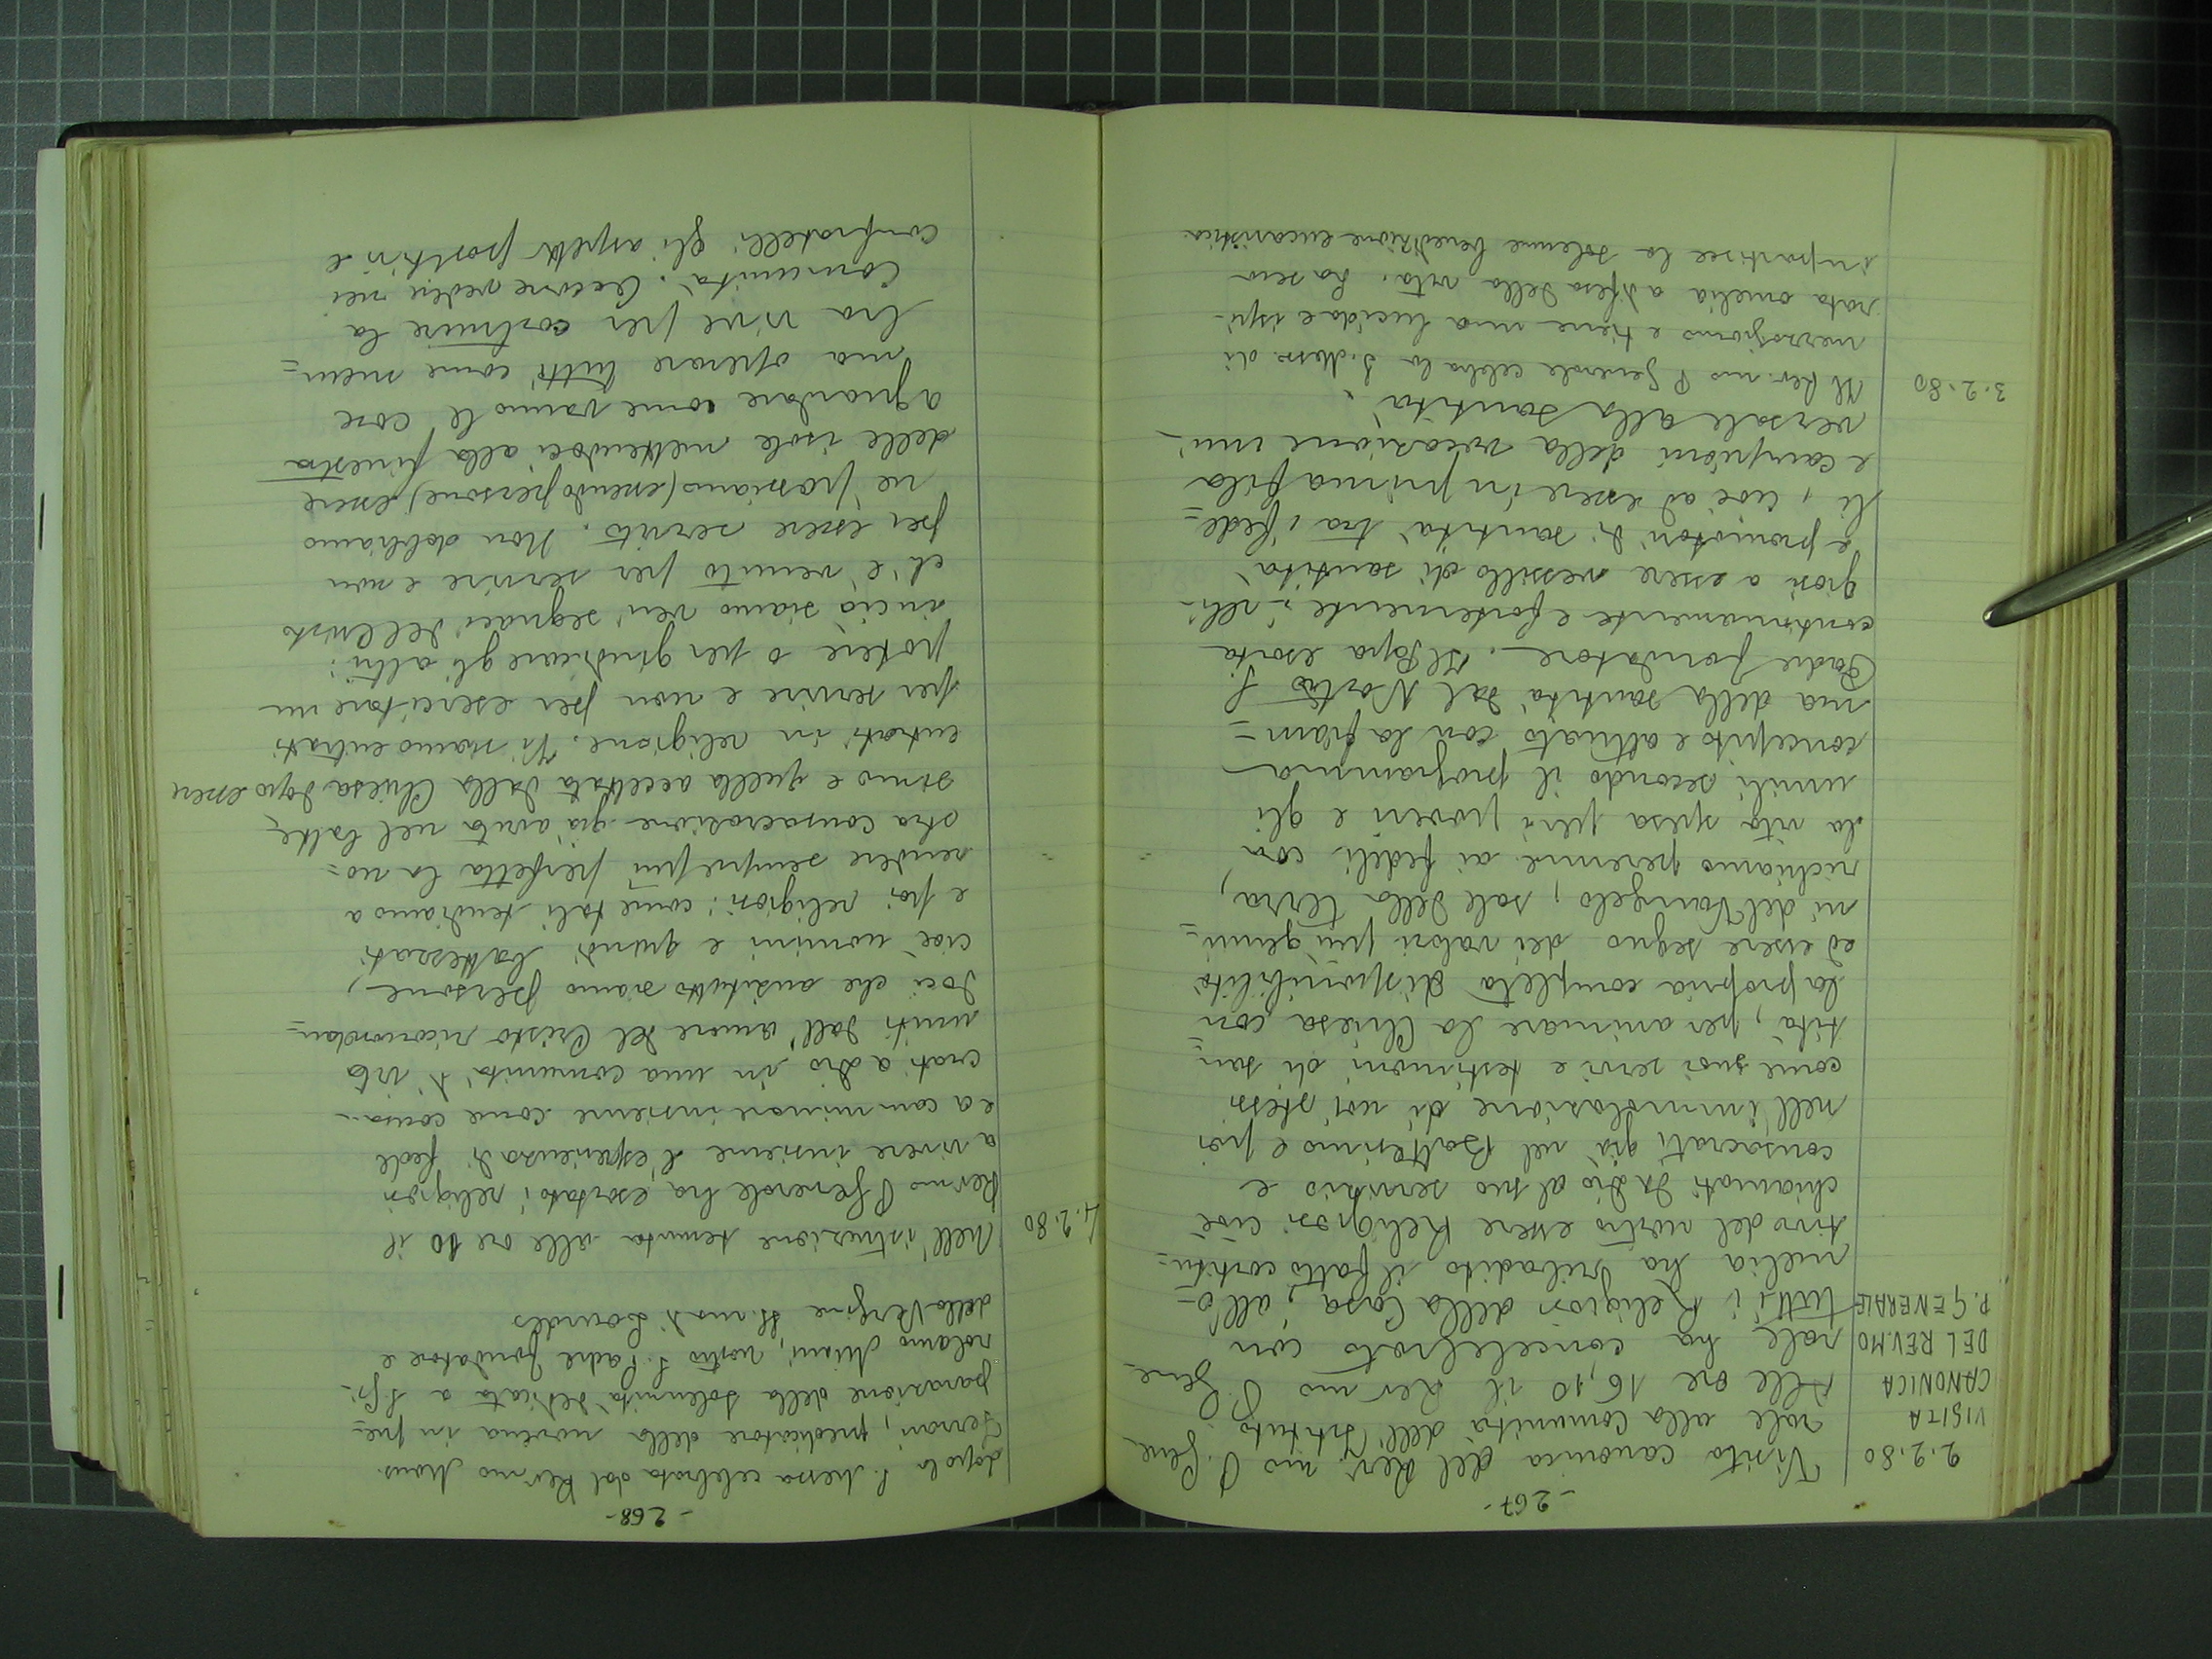 - 267 -
2.2.80
VISITA
CANONICA
DEL REV.MO
P. GENERALE
Visita canonica del Rev.mo P. Gene-
rale alla Comunità dell'Istituto.
Alle ore 16,10 il Rev.mo P. Gene-
rale ha concelebrato con
tutti i Religiosi della Casa; all'o-
melia ha ribadito il fatto costitu-
tivo del nostro essere Religiosi cioè
chiamati da Dio al suo servizio e
consacrati già nel Battesimo e poi
nell'immolazione di noi stessi
come suoi servi e testimoni di san-
tità, per animare la Chiesa con
la propria completa disponibilità
ed essere segno dei valori più genui-
ni del Vangelo, sale della terra,
richiamo perenne ai fedeli, con
la vita spesa per i poveri e gli
umili secondo il programma
concepito e attuato con la fiam-
ma della santità dal Nostro S.
Padre fondatore. Il Papa esorta
continuamente e fortemente i reli-
giosi a essere vessillo di santità
e promotori di santità tra i fede-
li, cioè ad essere in prima fila
e campioni della vocazione uni-
versale alla santità.
3.2.80
Il Rev.mo P. Generale celebra la S. Messa di
mezzogiorno e tiene una lucida e ispi-
rata omelia a difesa della vita. La sera
impartisce la solenne benedizione eucaristica
- 268 -
dopo la S. Messa celebrata dal Rev.mo Mons.
Ferrari, predicatore della novena in pre-
parazione della solennità dedicata a S. Gi-
rolamo Miani, nostro S. Padre fondatore e
della Vergine SS.ma di Lourdes
4.2.80
Nell'istruzione tenuta alle ore 10 il
Rev.mo P. Generale ha esortato i religiosi
a vivere insieme l'esperienza di fede
e a camminare insieme come consa-
crati a Dio in una comunità di vita
uniti dall'amore del Cristo ricordan-
doci che anzitutto siamo persone,
cioè uomini e quindi battezzati
e poi religiosi: come tali tendiamo a
rendere sempre più perfetta la no-
stra consacrazione già avuta nel batte-
simo e quella accettata dalla Chiesa dopo essere
entrati in religione. Vi siamo entrati
per servire e non per esercitare un
potere o per giudicare gli altri:
in ciò siamo veri seguaci del Cristo
ch'è venuto per servire e non
per essere servito. Non dobbiamo
ne possiamo (essendo persone) essere
delle isole mettendoci alla finestra
a guardare come vanno le cose
ma operare tutti come mem-
bra vive per costruire la
Comunità. Occorre vedere nei
confratelli gli aspetti positivi e